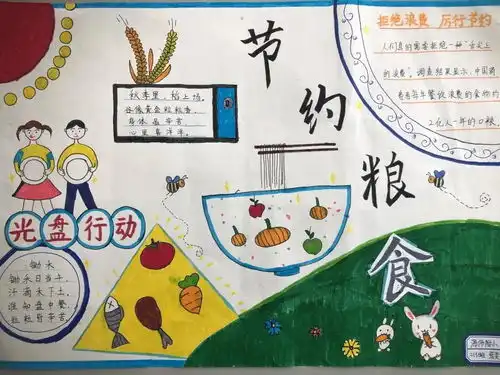 节约粮食
拒绝浪费 厉行节约
人们真的需要拒绝一种“舌尖上
的浪费”，调查结果显示，中国消
费者每年餐饮浪费的食物约
2亿人一年的口粮
秋季里，稻上场。
谷像黄金粒粒香，
身体虽辛苦
心里喜洋洋。
光盘行动
锄禾
锄禾日当午，
汗滴禾下土，
谁知盘中餐，
粒粒皆辛苦。